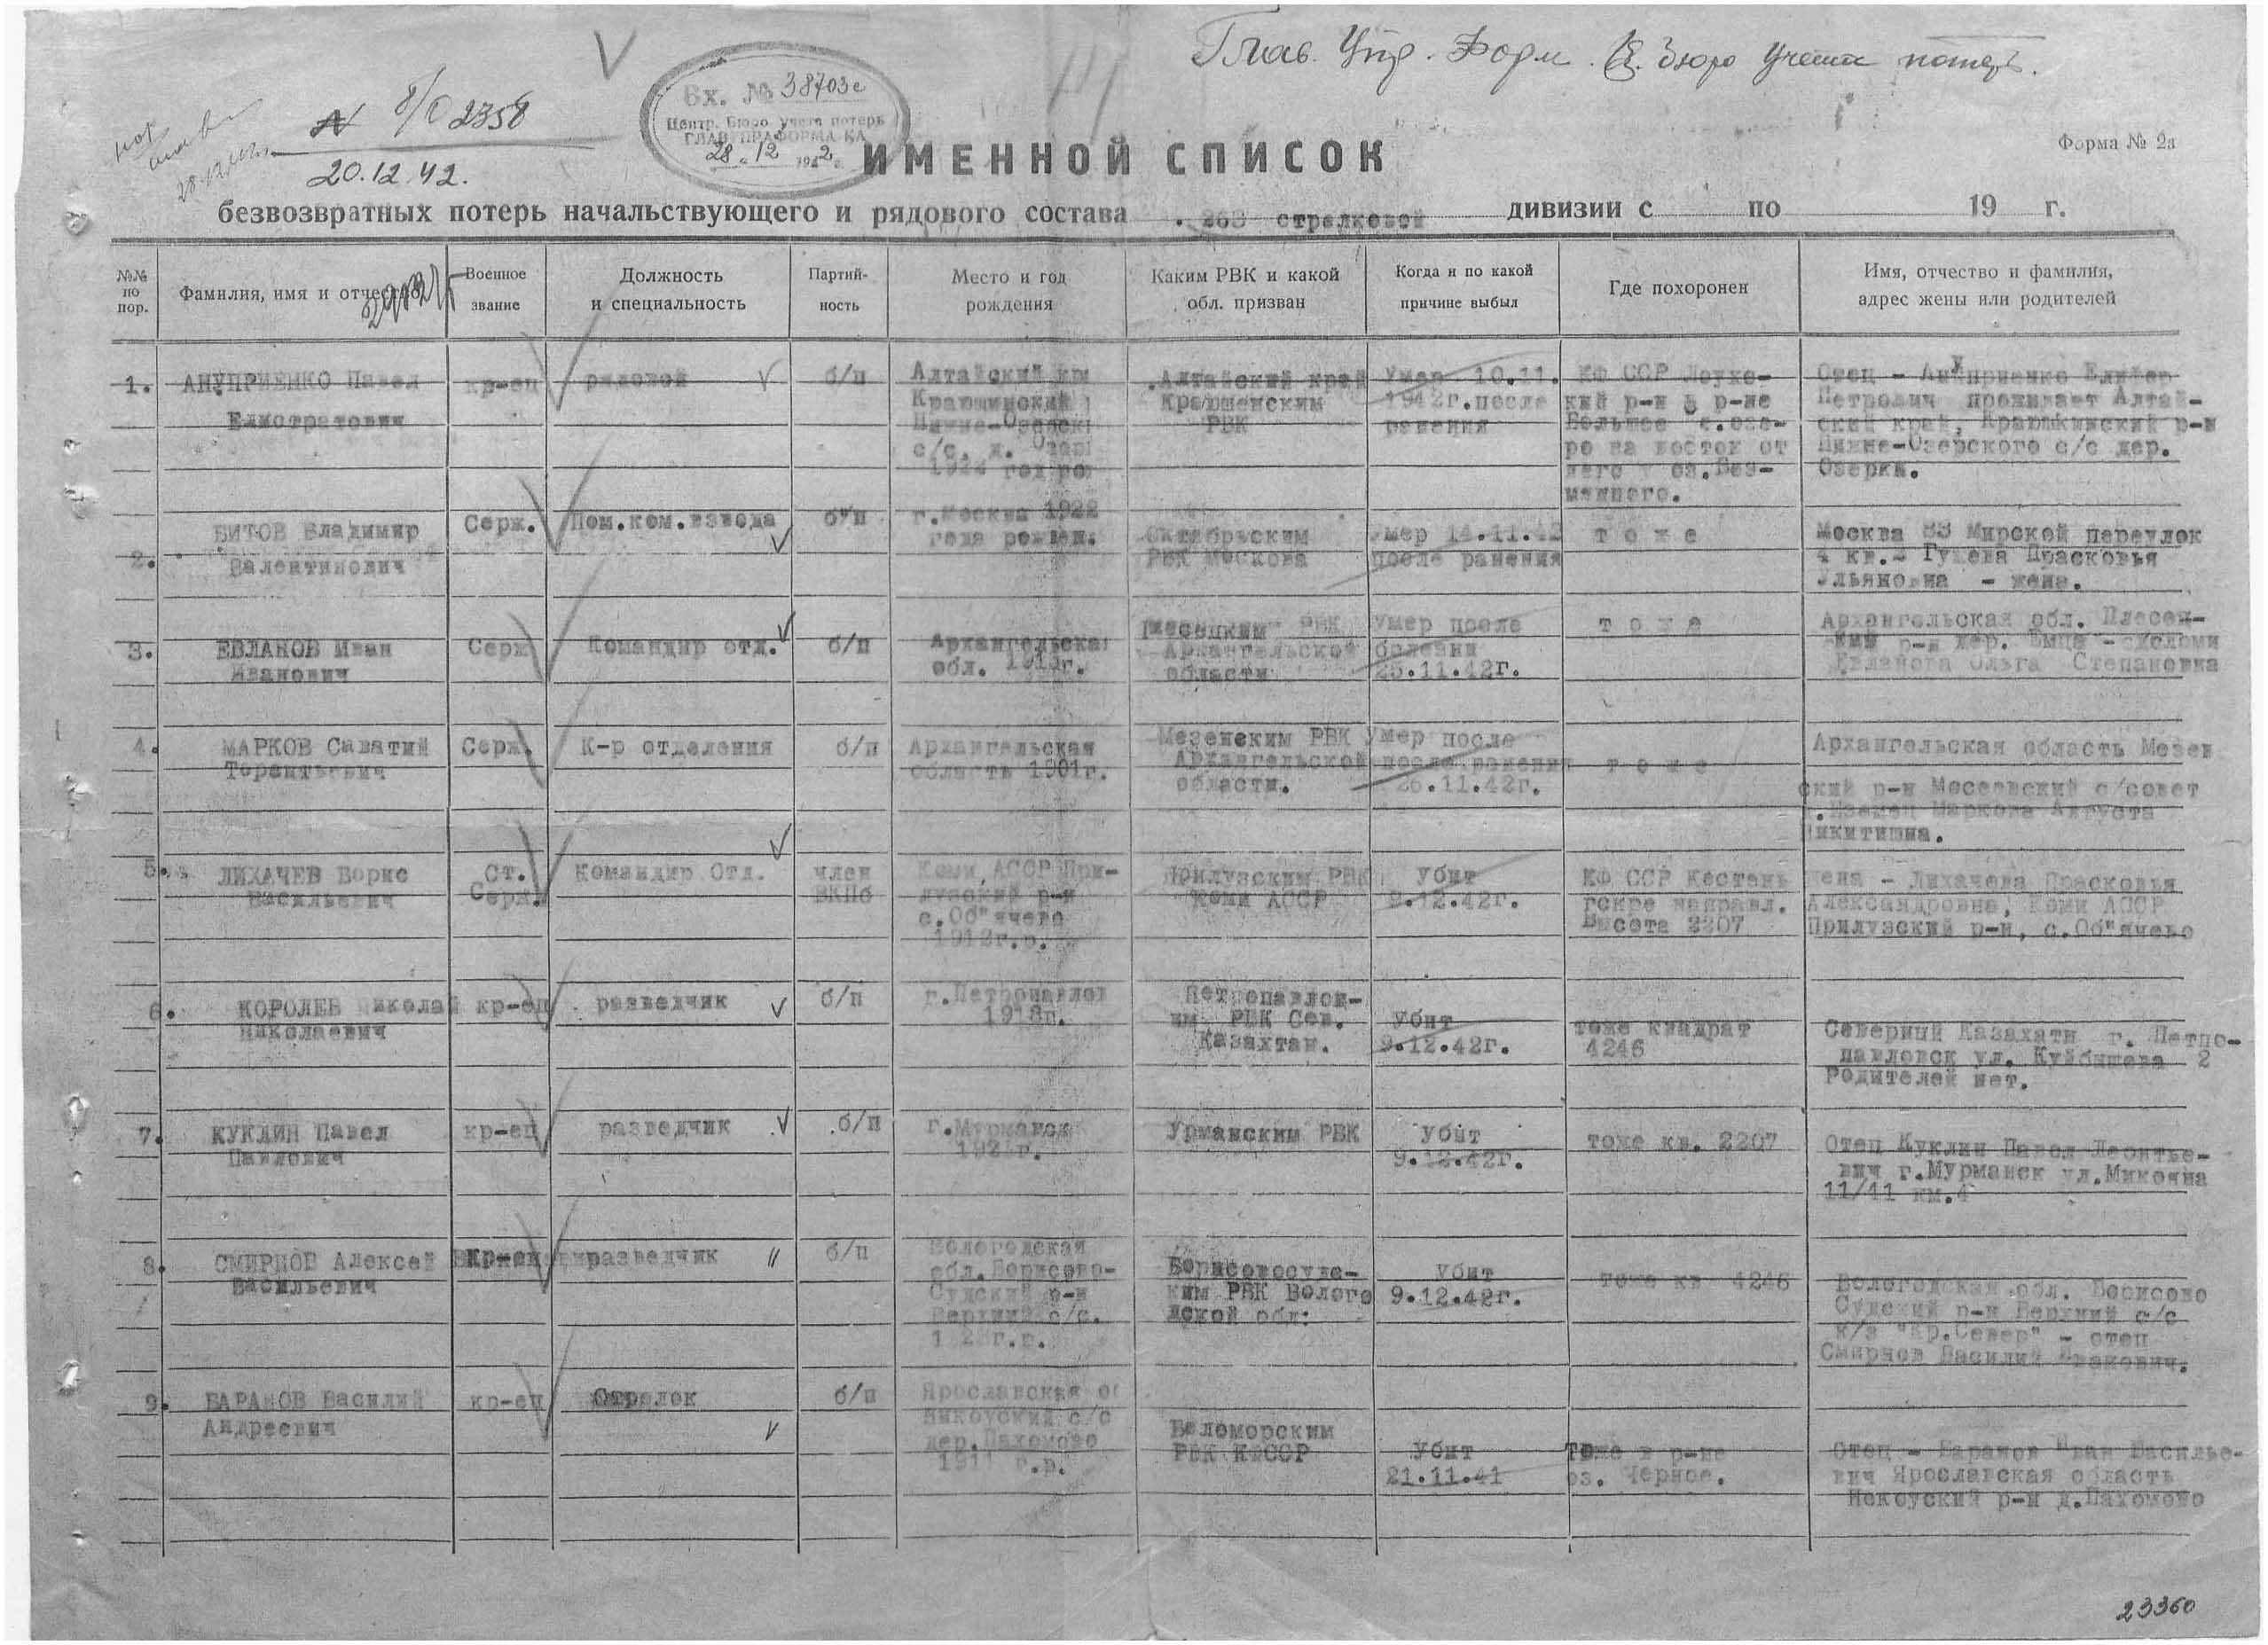 Глав. Упр. Форм. Бюро Учета потерь.
Вх. № 38703с
Центр. Бюро учета потерь
ГЛАВУПРАФОРМА КА
28 12 1942 г.
N 2358
20.12.42.
ИМЕННОЙ СПИСОК
Форма № 2а
безвозвратных потерь начальствующего и рядового состава 263 стрелковой дивизии с по 19 г.
№№ по пор.
Фамилия, имя и отчество
Военное звание
Должность и специальность
Партий- ность
Место и год рождения
Каким РВК и какой обл. призван
Когда и по какой причине выбыл
Где похоронен
Имя, отчество и фамилия, адрес жены или родителей
1. АНУПРИЕНКО Павел
Елистратович
кр-ец
рядовой
б/п
Алтайский
Краюшинский
с/с. д.
Алтайский край
Краюшенским
РВК
Умер 10.11.
1942г.после
ранения
КФ ССР Лоухс-
кий р-н в р-не
Большое с.озе-
ро на восток от
него оз.Без-
мянного.
Отец -
Петрович проживает Алтай-
ский край, р-н
Нижне-Озерского с/с дер.
Озерки.
2. БИТОВ Владимир
Валентинович
Серж.
Пом.ком.взвода
б/п
г.Москва 1922
года рожден.
Октябрьским
РВК Москова
Умер 14.11.42
после ранения
т о ж е
Москва 83 Мирской переулок
4 кв.- Гущева Прасковья
Ульяновна - жена.
3. ЕВЛАНОВ Иван
Иванович
Серж
Командир отд.
б/п
Архангельская
обл.
РВК
Архангельской
области
Умер после
болезни
25.11.42г.
т о ж е
Архангельская обл. Плесец-
кий р-н дер.
Ольга Степановна
4. МАРКОВ Саватий
Терентьевич
Серж.
К-р отделения
б/п
Архангельская
область 1901г.
Мезенским РВК
Архангельской
области.
Умер после
после ранения
26.11.42г.
т о ж е
Архангельская область Мезен
ский р-н с/совет
Маркова Августа
Никитишна.
5. ЛИХАЧЕВ Борис
Васильевич
Ст.
Серж.
Командир Отд.
член
ВКПб
Коми АССР При-
лузский р-н
с.Об"ячево
1912г.р.
Прилузским РВК
Коми АССР
Убит
9.12.42г.
КФ ССР Кестень
гскре направл.
Высота 2207
жена - Лихачева Прасковья
Александровна, Коми АССР
Прилузский р-н, с.Об"ячево
6. КОРОЛЕВ Николай
Николаевич
кр-ец
разведчик
б/п
г.Петропавлов
Петропавлов-
им РВК Сев.
Казахтан.
Убит
9.12.42г.
тоже квадрат
4246
Северный Казахатн г. Петро-
павловск ул. Куйбышева 2
Родителей нет.
7. КУКЛИН Павел
Павлович
кр-ец
разведчик
б/п
г.Мурманск
Урманским РВК
Убит
9.12.42г.
тоже кв. 2207
Отец Куклин Павел Леонтье-
вич г.Мурманск ул.Микояна
11/41 кв.4
8. СМИРНОВ Алексей
Васильевич
кр-ец
разведчик
б/п
Вологодская
обл.Борисово-
Судский р-н
Верхний с/с.
Борисовосудс-
ким РВК Волого
дской обл:
Убит
9.12.42г.
тоже кв 4246
Вологодская обл. Борисово
Судский р-н Верхний с/с
к/з "Кр.Север" - отец
Смирнов Василий Иванович.
9. БАРАНОВ Василий
Андреевич
кр-ец
Стрелок
б/п
Ярославская
с/с
дер.Пахомово
1911 г.р.
Беломорским
РВК КФССР
Убит
21.11.41
Тоже в р-не
оз. Черное.
Отец - Баранов Иван Василье-
вич Ярославская область
Некоуский р-н д.Пахомово
23360